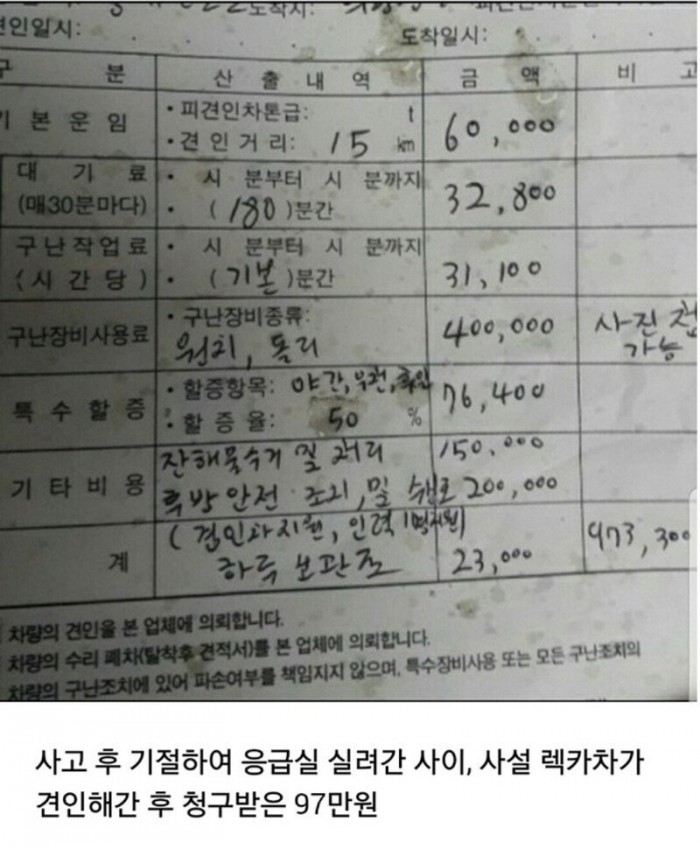 도착지:
견인일시: 도착일시:
구 분 산 출 내 역 금 액 비 고
기 본 운 임 • 피견인차톤급: t 60,000
• 견 인 거 리: 15 km
대 기 료 • 시 분부터 시 분까지 32,800
(매30분마다) • (180)분간
구난작업료 • 시 분부터 시 분까지 31,100
(시 간 당) • (기본)분간
구난장비사용료 • 구난장비종류: 400,000 사진 첩
윈치, 돌리 가능
특 수 할 증 • 할증항목: 야간, 우천, 76,400
• 할 증 율: 50 %
기 타 비 용 잔해물수거 및 처리 150,000
후방안전 조치, 및 200,000
계 (견인차지원, 인력1명지원) 973,300
하루 보관료 23,000
차량의 견인을 본 업체에 의뢰합니다.
차량의 수리 폐차(탈착후 견적서)를 본 업체에 의뢰합니다.
차량의 구난조치에 있어 파손여부를 책임지지 않으며, 특수장비사용 또는 모든 구난조치의
사고 후 기절하여 응급실 실려간 사이, 사설 렉카차가
견인해간 후 청구받은 97만원